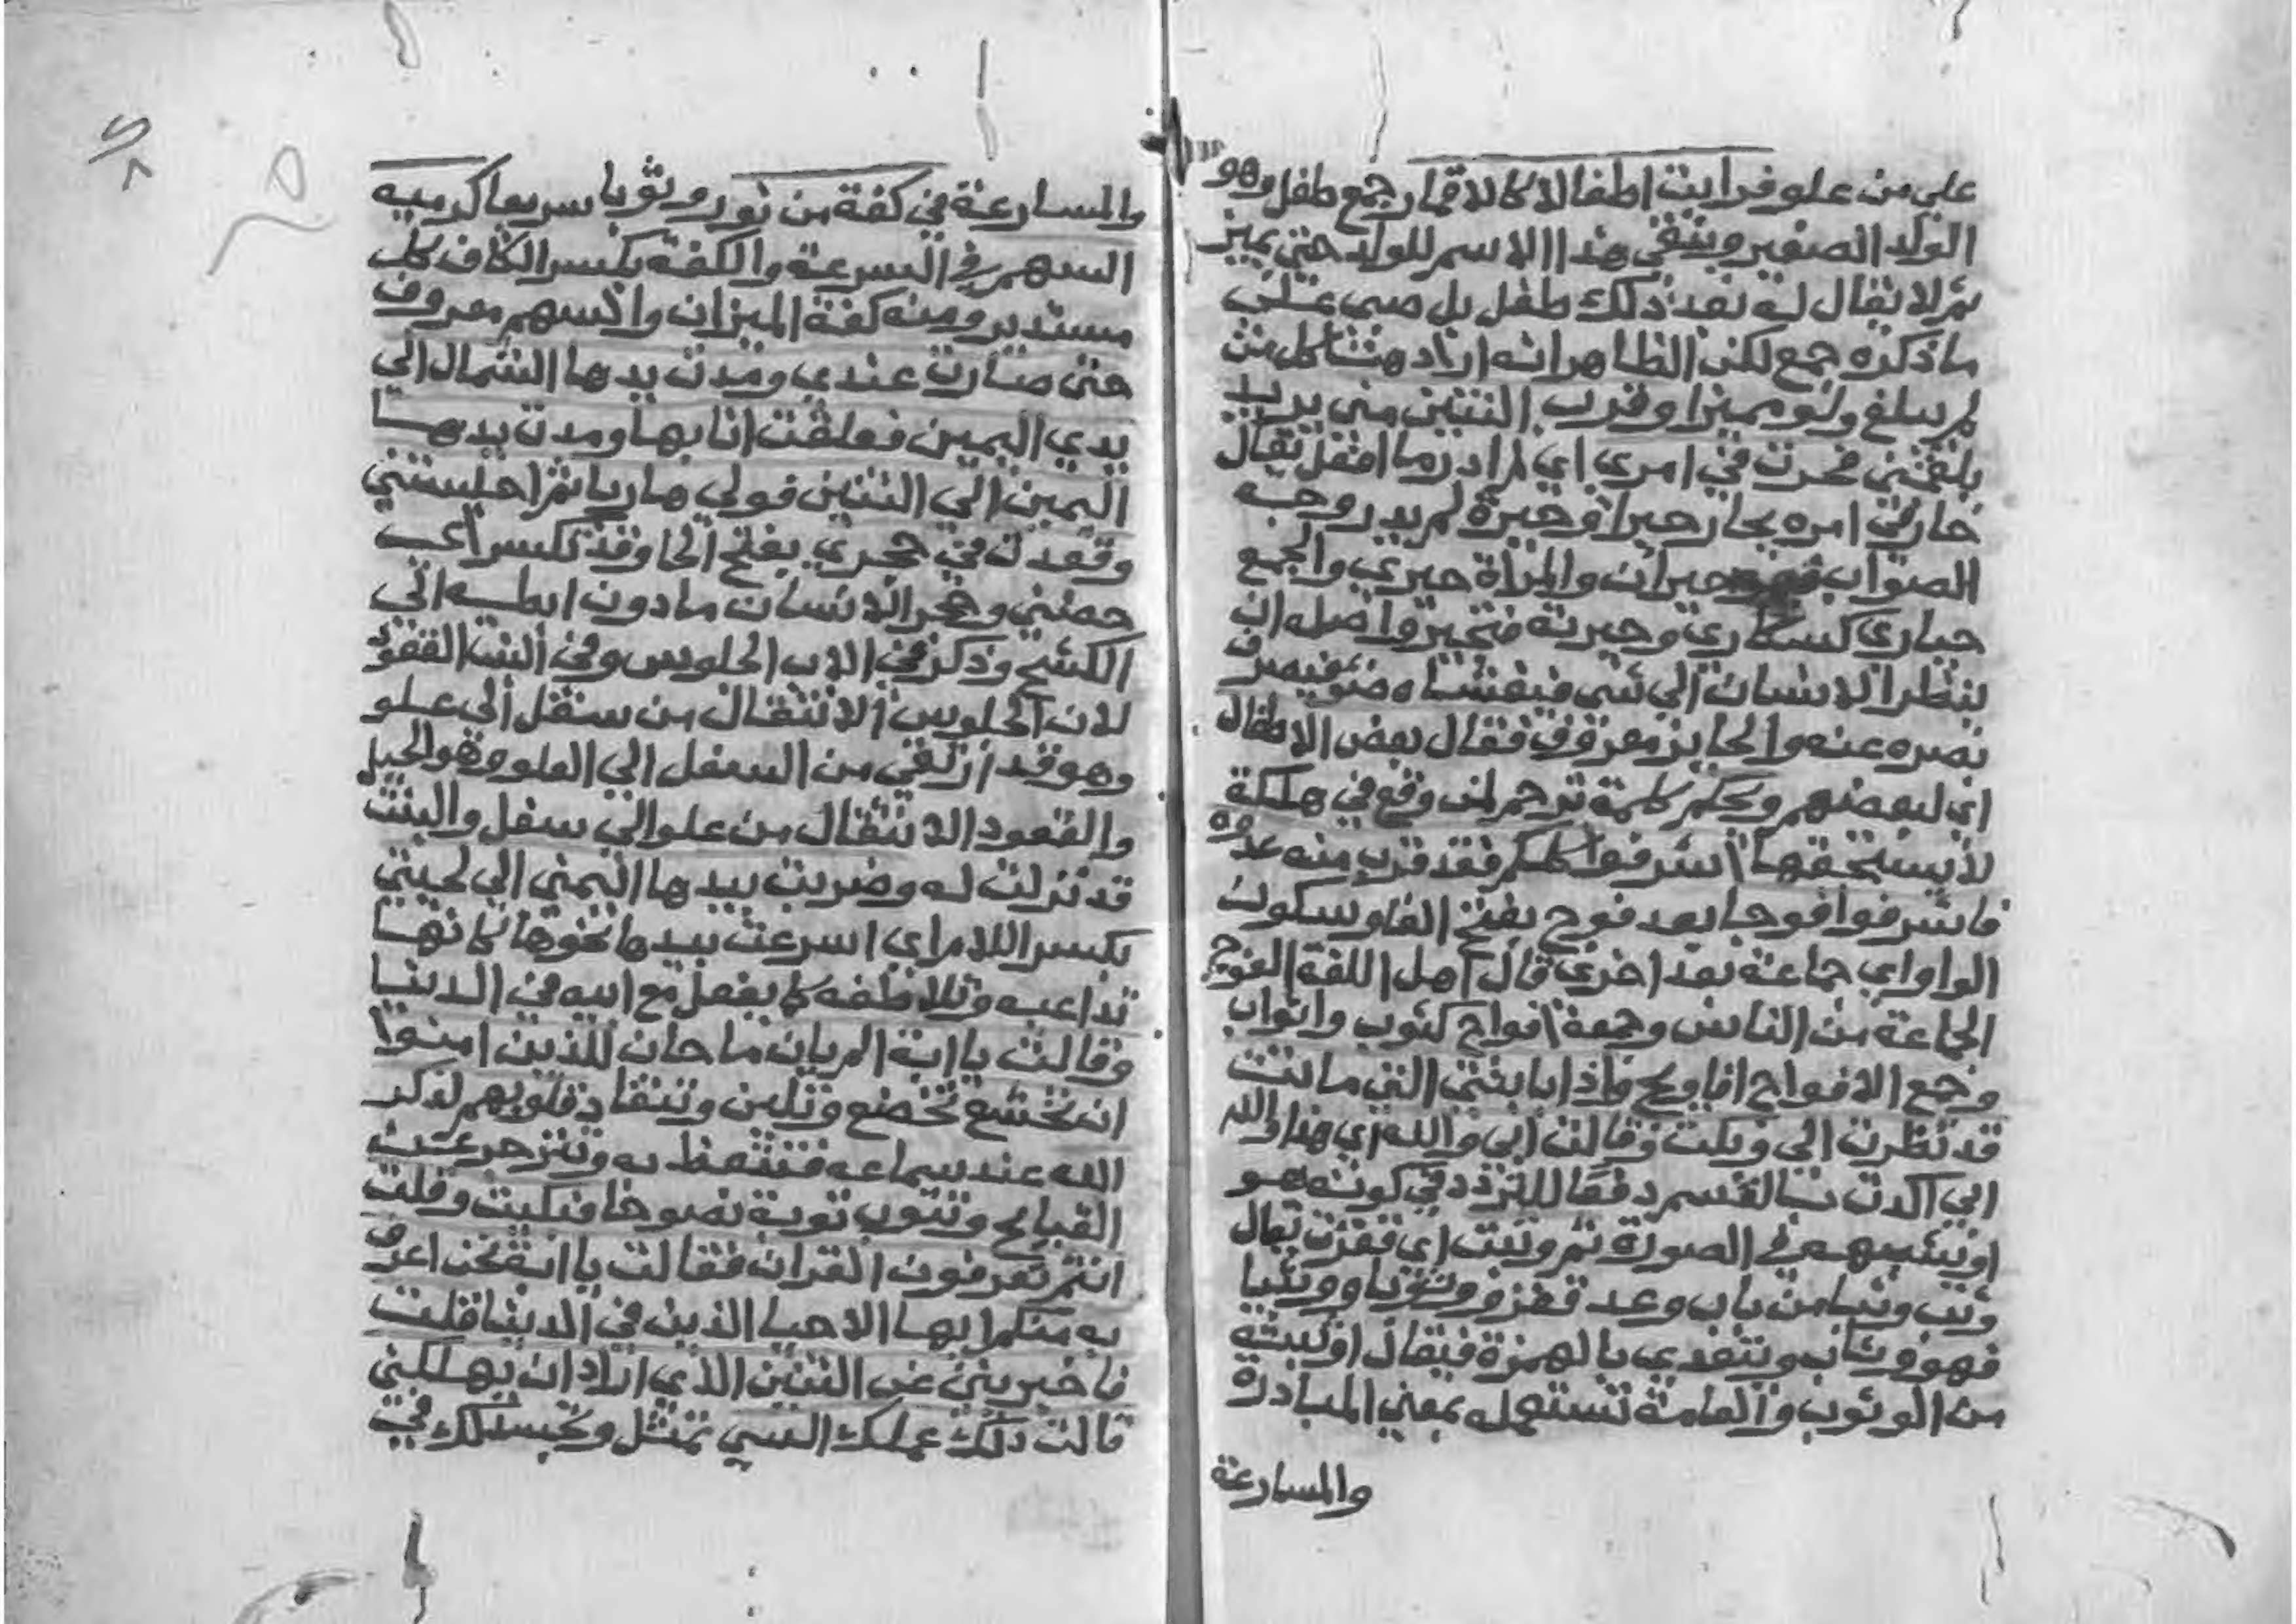 علي من علو فرايت اطفالا كالاقمار جمع طفل وهو
الولد الصغير ويبقي هذا الاسم للولد حتي يميز
ثم لا يقال له بعد ذلك طفل بل صبي علي
ما ذكره جمع لكن الظاهر انه اراد هنا كل من
لم يبلغ ولو مميزا وقرب التنين مني يريد
يلقمني فحرت في امري اي لم ادر ما افعل يقال
حار في امره يحار حيرا وحيرة لم يدر وجه
الصواب فهو حيران والمراة حيري والجمع
حياري كسكاري وحيرته فتحير واصله ان
ينظر الانسان الي شي فيغشاه ضوء فيصرف
بصره عنه والحاير معروف فقال بعض الاطفال
اي لبعضهم ويحكم كلمة ترحم لمن وقع في هلكة
لا يستحقها اشرفوا كلكم فقد قرب منه عدوه
فاشرفوا فوجا بعد فوج بفتح الفا وسكون
الواو اي جماعة بعد اخري قال اهل اللغة الفوج
الجماعة من الناس وجمعه افواج كثوب واثواب
وجمع الافواج افاويج واذا بابنتي التي ماتت
قد نظرت الي وبكت وقالت ابي والله اي هذا والله
ابي اكدت بالقسم دفعا للتردد في كونه هو
او يشبهه في الصورة ثم وثبت اي قفزت يقال
وثب وثبا من باب وعد قفز ووثوبا ووثيبا
فهو وثاب ويتعدي بالهمزة فيقال اوثبته
من الوثوب والعامة تستعمله بمعني المبادرة
والمسارعة
والمسارعة في كفة من نور وثوبا سريعا كرمية
السهم في السرعة والكفة بكسر الكاف كل
مستدير ومنه كفة الميزان والسهم معروف
حتي صارت عندي ومدت يدها الشمال الي
يدي اليمين فعلقت انا بها ومدت يدها
اليمين الي التنين فولي هاربا ثم اجلستني
وقعدت في حجري بفتح الحا وقد تكسر اي
حضني وحجر الانسان ما دون ابطه الي
الكشح وذكر في الاب الجلوس وفي البنت القعود
لان الجلوس الانتقال من سفل الي علو
وهو قد ارتقي من السفل الي العلو وهو الجبل
والقعود الانتقال من علو الي سفل والبنت
قد نزلت له وضربت بيدها اليمني الي لحيتي
بكسر اللام اي اسرعت بيدها نحوها كانها
تداعبه وتلاطفه كما يفعل مع ابيه في الدنيا
وقالت يا ابة الم يان ما حان للذين امنوا
ان تخشع تخضع وتلين وتنقاد قلوبهم لذكر
الله عند سماعه فتتعظ به وتنزجر عن
القبايح وتتوب توبة نصوحا فبكيت وقلت
انتم تعرفون القران فقالت يا ابة نحن اعرف
به منكم ايها الاحيا الذين في الدنيا قلت
فاخبريني عن التنين الذي اراد ان يهلكني
قالت ذلك عملك السي تمثل وتجسد لك في